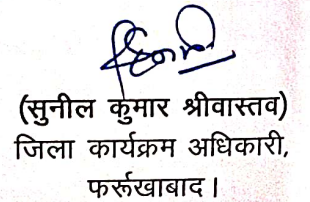 (सुनील कुमार श्रीवास्तव)
जिला कार्यक्रम अधिकारी,
फर्रूखाबाद।